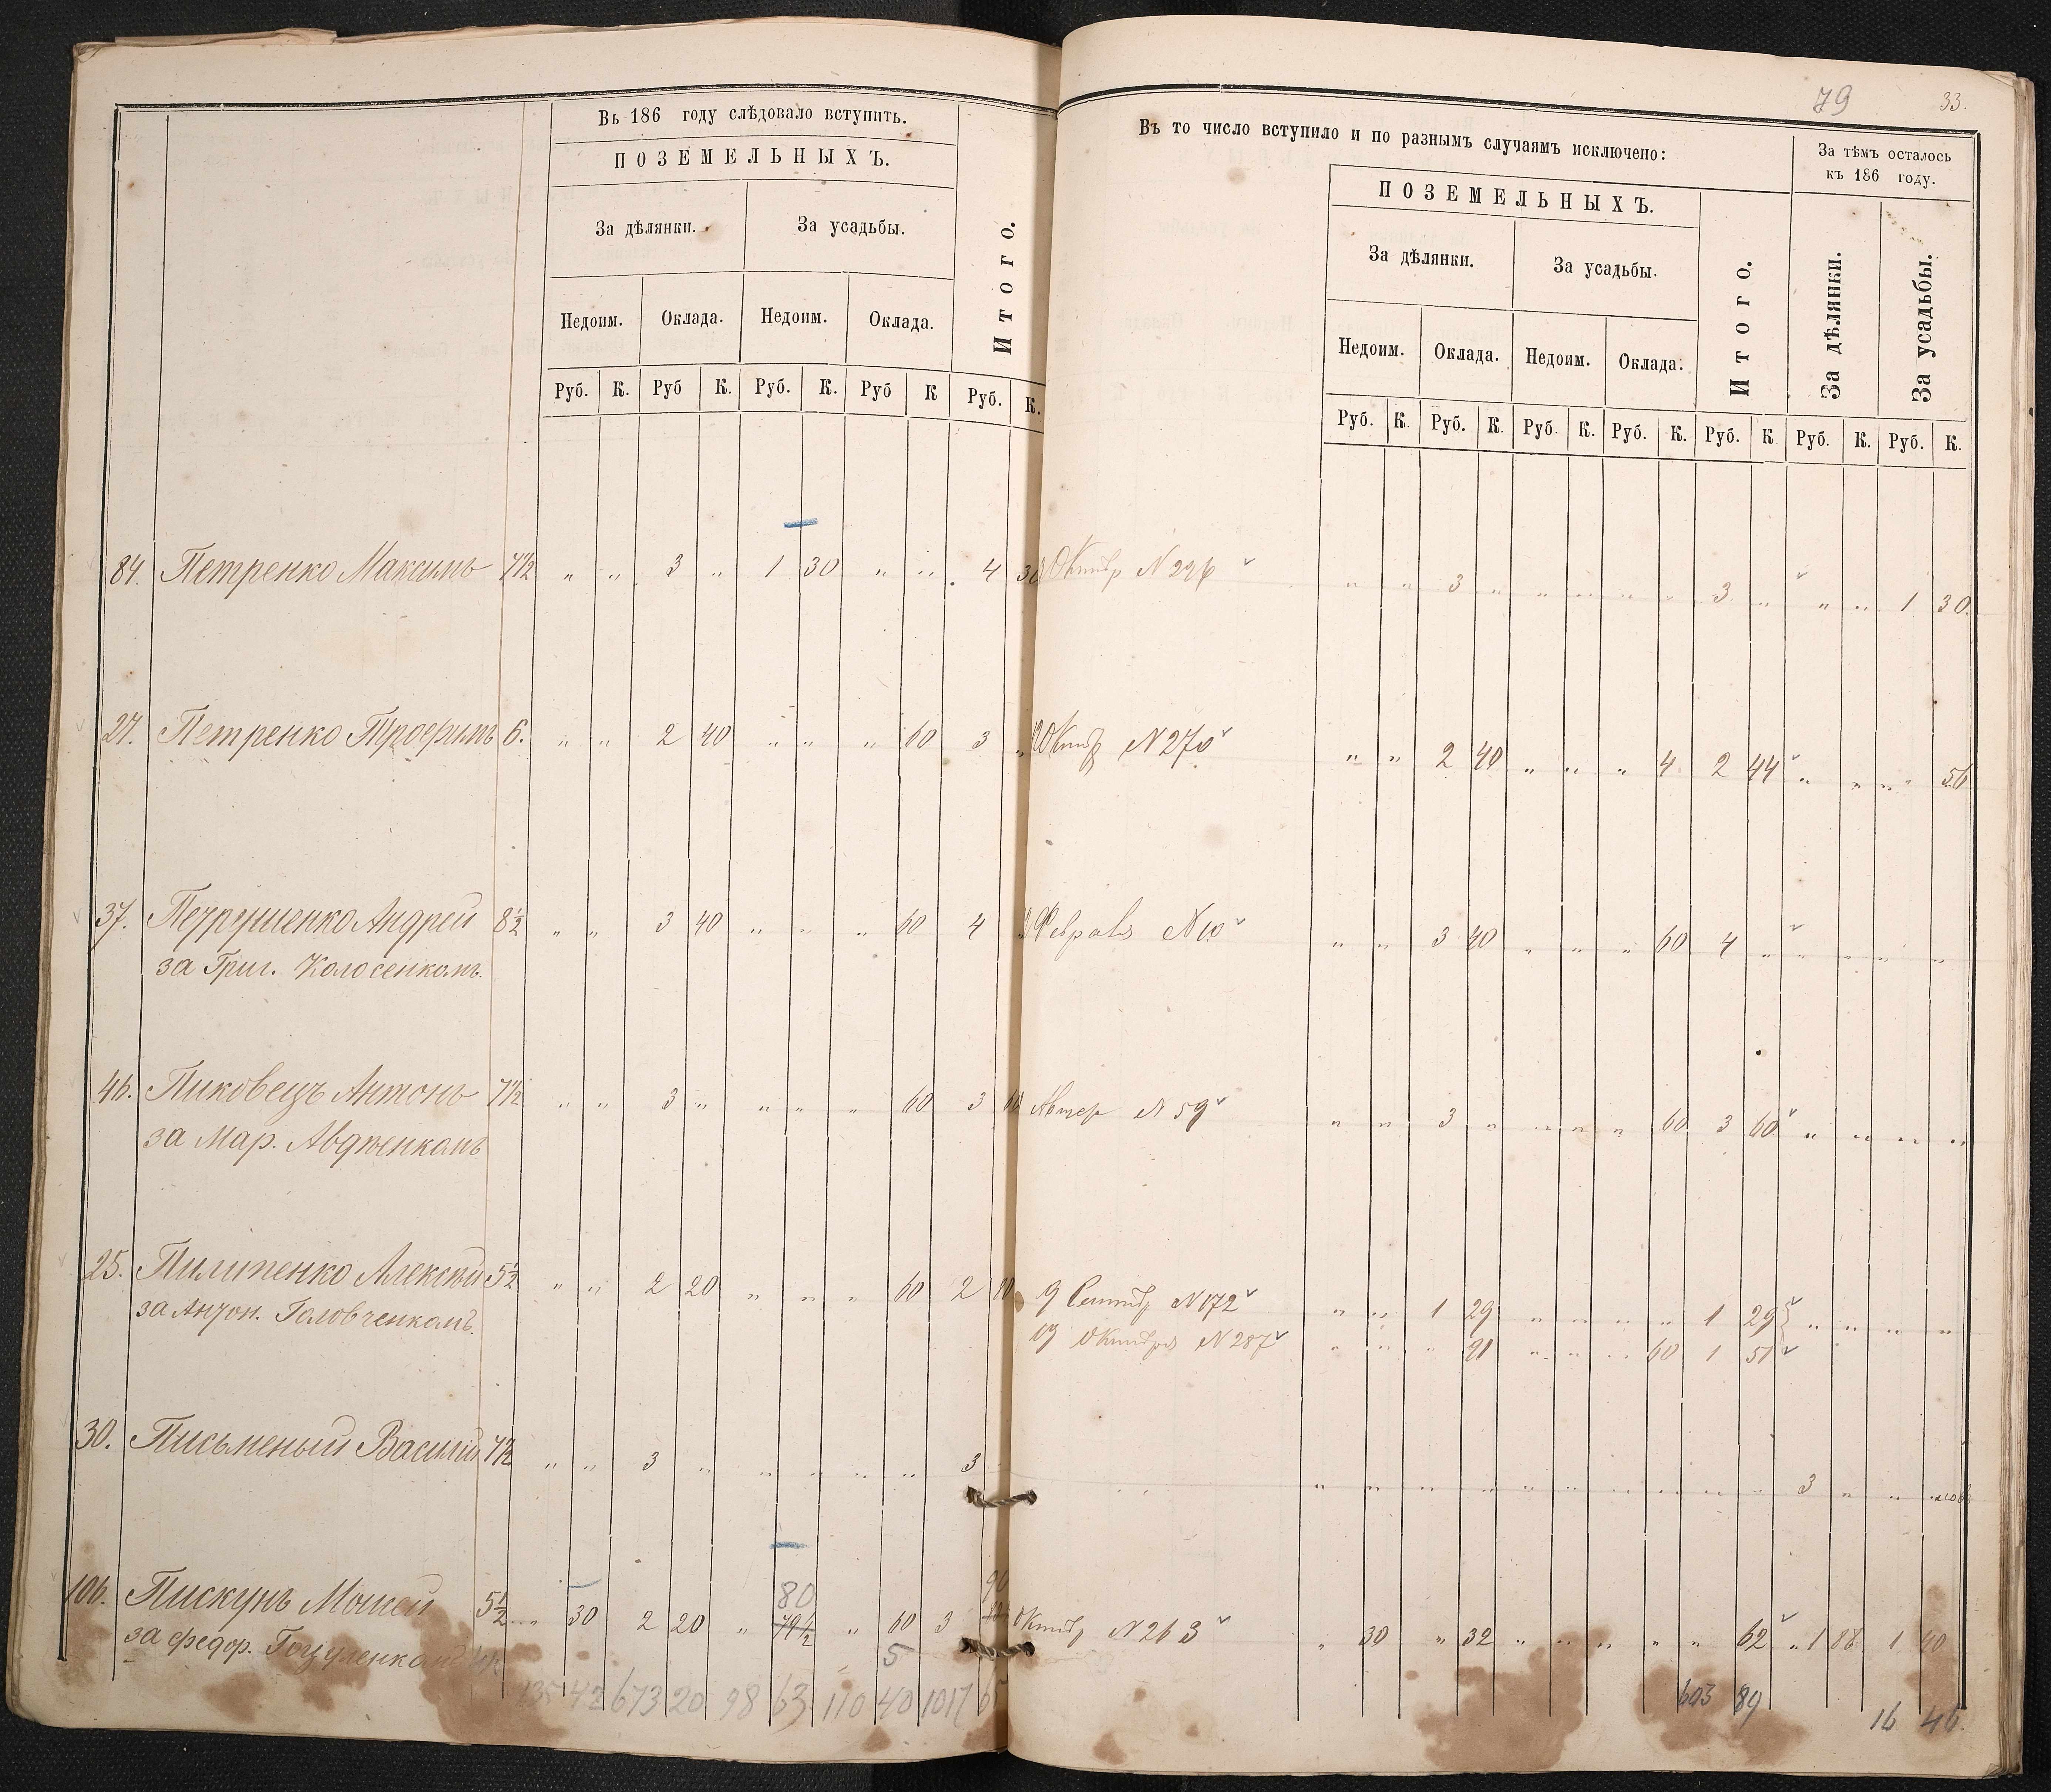 79 33.
Въ 186 году слѣдовало вступить.
ПОЗЕМЕЛЬНЫХЪ.
За дѣлянки. За усадьбы. Итого.
Недоим. Оклада. Недоим. Оклада.
Руб. К. Руб К. Руб. К. Руб К Руб. К.
84. Петренко Максимъ 7½ " " 3 " 1 30 " " 4 30
27. Петренко Трофимъ 6. " " 2 40 " " " 60 3 "
37. Петрушенко Андрей 8½ " " 3 40 " " " 60 4 "
за Григ. Колосенкомъ.
46. Пиковецъ Антонъ 7½ " " 3 " " " " 60 3 60
за Мар. Авдѣенкомъ
25. Пилипенко Алексѣй 5½ " " 2 20 " " " 60 2 80
за Антон. Головченкомъ.
30. Письменый Василій 7½ " " 3 " " " " " 3
106. Пискунъ Мосей 5½ " 30 2 20 " 79½ 80 " 60 3 90
за Федор. Гоцуленкомъ
5
135 42 673 20 98 63 110 40 1017 65
Въ то число вступило и по разнымъ случаямъ исключено:
За тѣмъ осталось
къ 186 году.
ПОЗЕМЕЛЬНЫХЪ.
За дѣлянки. За усадьбы. Итого. За дѣлянки. За усадьбы.
Недоим. Оклада. Недоим. Оклада.
Руб. К. Руб. К. Руб. К. Руб. К. Руб. К Руб. К. Руб. К.
Октябр N 226 " " 3 " " " " " 3 " " " 1 30.
Октяб N 270 " " 2 40 " " " 4 2 44 " " " 56
Февраля N 10 " " 3 40 " " " 60 4 " " " " "
N 59 " " 3 " " " " 60 3 60 " " " "
9 Сентяб N 172 " " 1 29 " " " " 1 29 " " " "
19 Октября N 287 " " " 91 " " " 60 1 51
" " " " " " " " " " 3 " "
Октяб N 263 " 30 " 32 " " " " " 62 " 1 88 1 40
603 89 16 46.